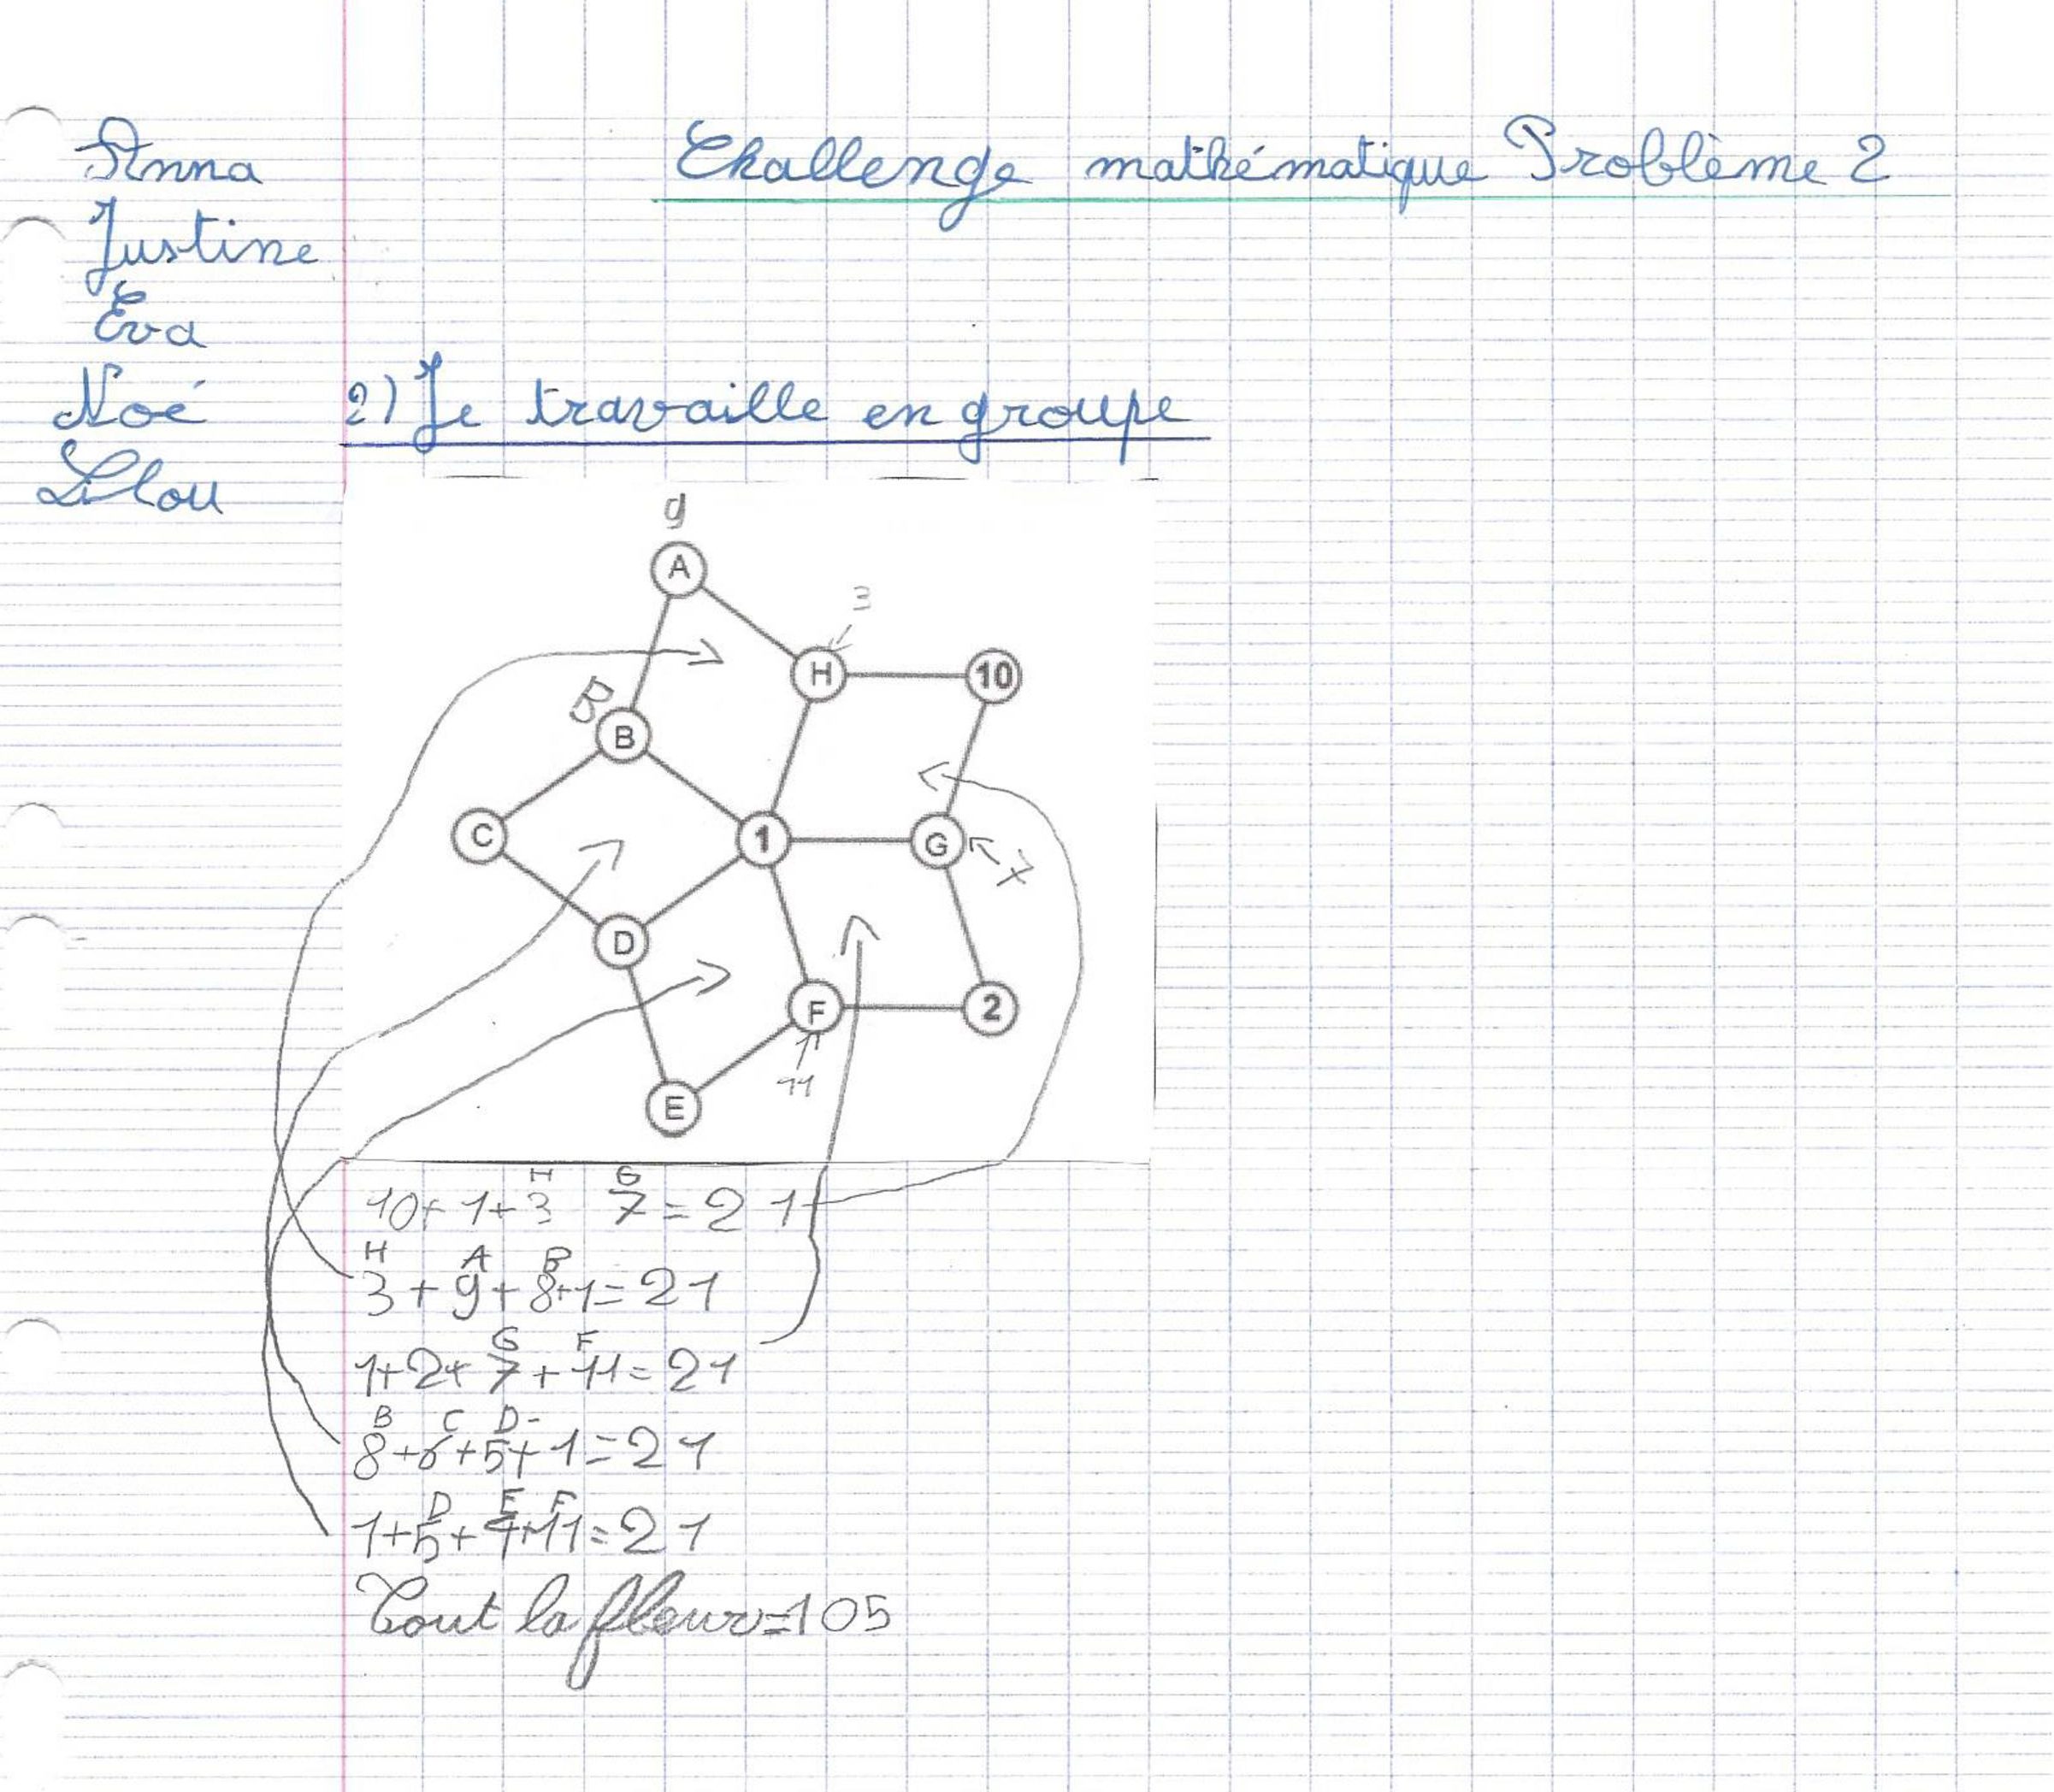 Anna
Challenge mathématique Problème 2
Justine
Eva
Noé
2) Je travaille en groupe
Lilou
9
A
3
H
10
B
B
C
1
G
7
D
F
2
11
E
H G
10+ 1+3 7 = 21
H A B
3 + 9 + 8+1 = 21
G F
1+2+ 7 + 11 = 21
B C D-
8+6+5+ 1 = 21
D E F
1+5+4+11=21
Tout la fleur=105